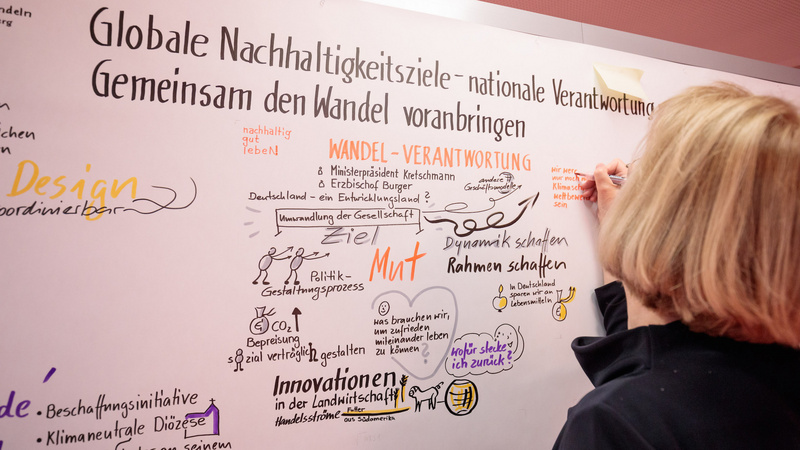 ndeln
rg
Globale Nachhaltigkeitsziele - nationale Verantwortung
Gemeinsam den Wandel voranbringen
nachhaltig
gut
leben
WANDEL - VERANTWORTUNG
Ministerpräsident Kretschmann
Erzbischof Burger
Deutschland - ein Entwicklungsland?
Umwandlung der Gesellschaft
Ziel
andere
Geschäftsmodelle
wir
nur noch
Klimasch
wettbewer
sein
lichen
n
Design
oordinierbar
Mut
Dynamik schaffen
Rahmen schaffen
Politik-
Gestaltungsprozess
In Deutschland
sparen wir an
Lebensmitteln
€ CO2
Bepreisung
sozial verträglich gestalten
was brauchen wir,
um zufrieden
miteinander leben
zu können?
Wofür stecke
ich zurück?
Innovationen
in der Landwirtschaft
Handelsströme
Futter
aus Südamerika
de'
• Beschaffungsinitiative
• Klimaneutrale Diözese
seinem